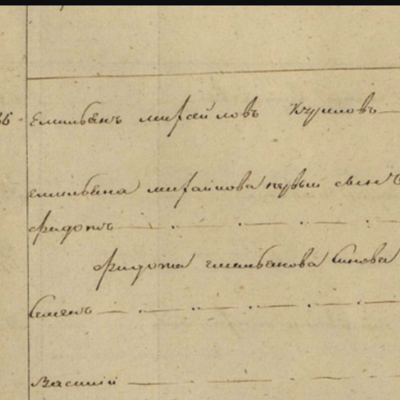 36 Емильянъ михайловъ Куриловъ
емильяна михайлова первый сынъ
Федотъ
Федота емильянова сынова
Семенъ
Василий